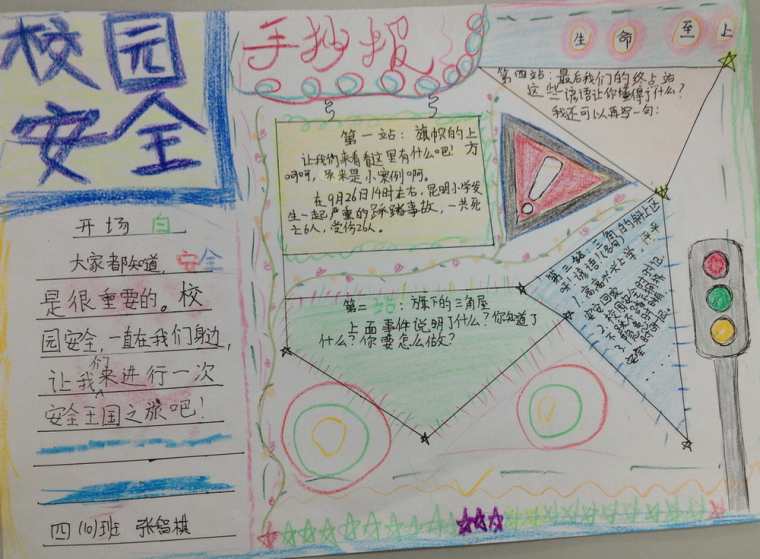 校园
安全
手抄报
生命至上
开场白
大家都知道,安全
是很重要的。校
园安全,一直在我们身边,
让我们来进行一次
安全王国之旅吧!
四(10)班 张
第一站:旗帜的上方
让我们来看看这里有什么吧!
呵呵,原来是小案例啊。
在9月26日14时左右,昆明小学发
生一起严重的踩踏事故,一共死
亡6人,受伤26人。
第二站:旗下的三角座
上面事件说明了什么?你知道了
什么?你要怎么做?
第三站:三角的斜上区
1.高高兴兴上学,平平
安安回家。
2.校园
3.
安全
……
第四站:最后我们的终点站
这些谚语让你懂得了什么?
我还可以再写一句: